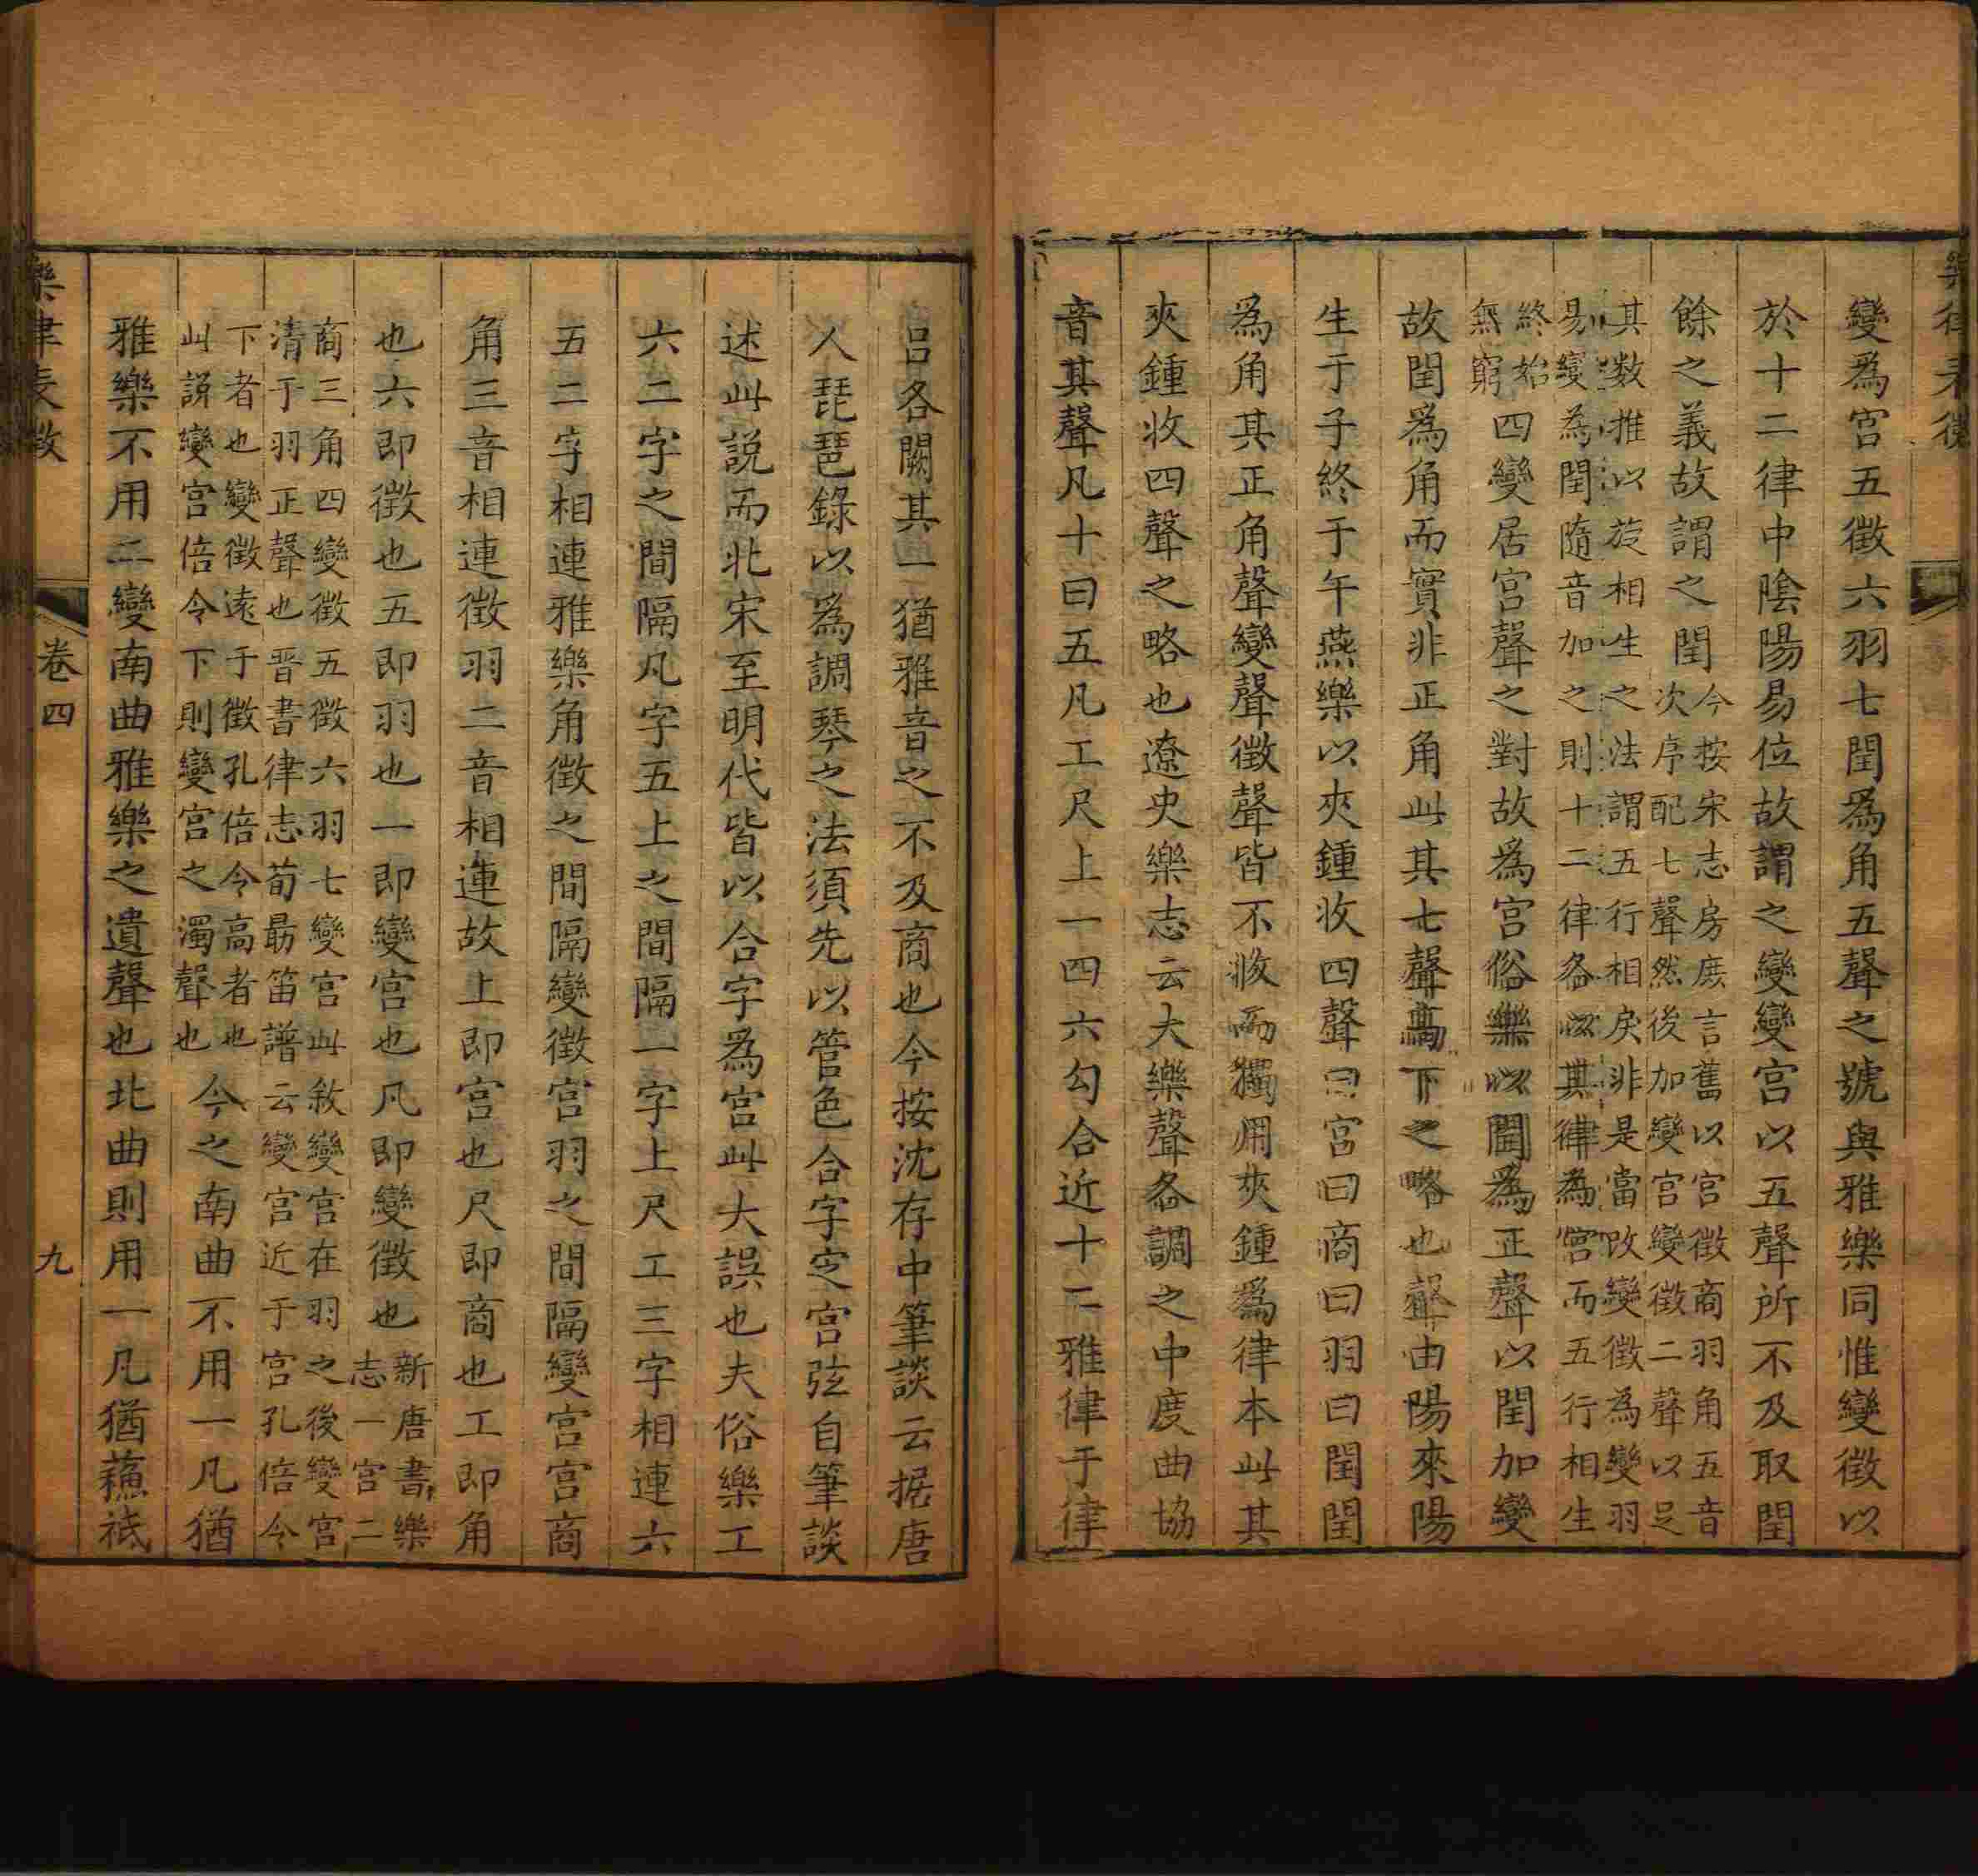 樂律表微
變爲宮五徵六羽七閏爲角五聲之號與雅樂同惟變徵以
於十二律中陰陽易位故謂之變變宮以五聲所不及取閏
餘之義故謂之閏今按宋志房庶言舊以宮徵商羽角五音
次序配七聲然後加變宮變徵二聲以足
其数推以旋相生之法謂五行相戾非是當改變徵為變羽
易變為閏隨音加之則十二律各以其律為宮而五行相生
終始
無窮四變居宮聲之對故爲宮俗樂以閏爲正聲以閏加變
故閏爲角而實非正角此其七聲高下之略也聲由陽來陽
生于子終于午燕樂以夾鍾收四聲曰宮曰商曰羽曰閏閏
為角其正角聲變聲徵聲皆不收而獨用夾鍾爲律本此其
夾鍾收四聲之略也遼史樂志云大樂聲各調之中度曲協
音其聲凡十曰五凡工尺上一四六勾合近十二雅律于律
吕各闕其一猶雅音之不及商也今按沈存中筆談云据唐
人琵琶錄以爲調琴之法須先以管色合字定宮弦自筆談
述此説而北宋至明代皆以合字爲宮此大誤也夫俗樂工
六二字之間隔凡字五上之間隔一字上尺工三字相連六
五二字相連雅樂角徵之間隔變徵宮羽之間隔變宮宮商
角三音相連徵羽二音相連故上即宮也尺即商也工即角
也六即徵也五即羽也一即變宮也凡即變徵也新唐書樂
志一宮二
商三角四變徵五徵六羽七變宮此敘變宮在羽之後變宮
清于羽正聲也晋書律志荀勗笛譜云變宮近于宮孔倍令
下者也變徵遠于徵孔倍令高者也
此説變宮倍令下則變宮之濁聲也今之南曲不用一凡猶
雅樂不用二變南曲雅樂之遺聲也北曲則用一凡猶蘓祗
樂律表微
卷四
九